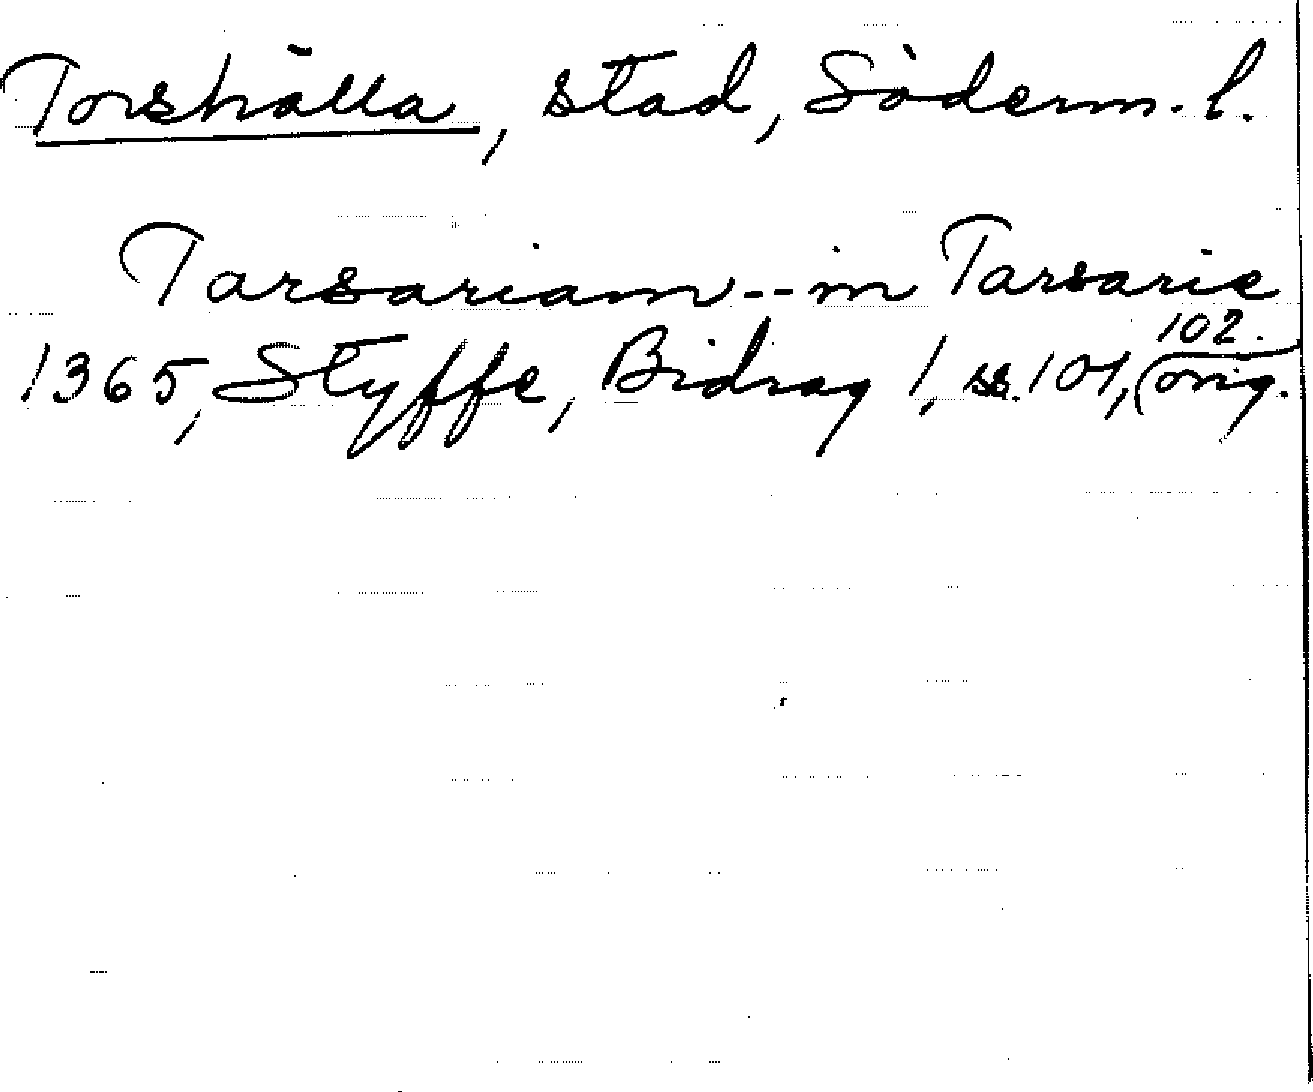 Torshälla, stad, Söderm. l.
Tarsariam -- in Tarsarie
1365, Styffe, Bidrag 1, ss. 101, 102.
(orig.